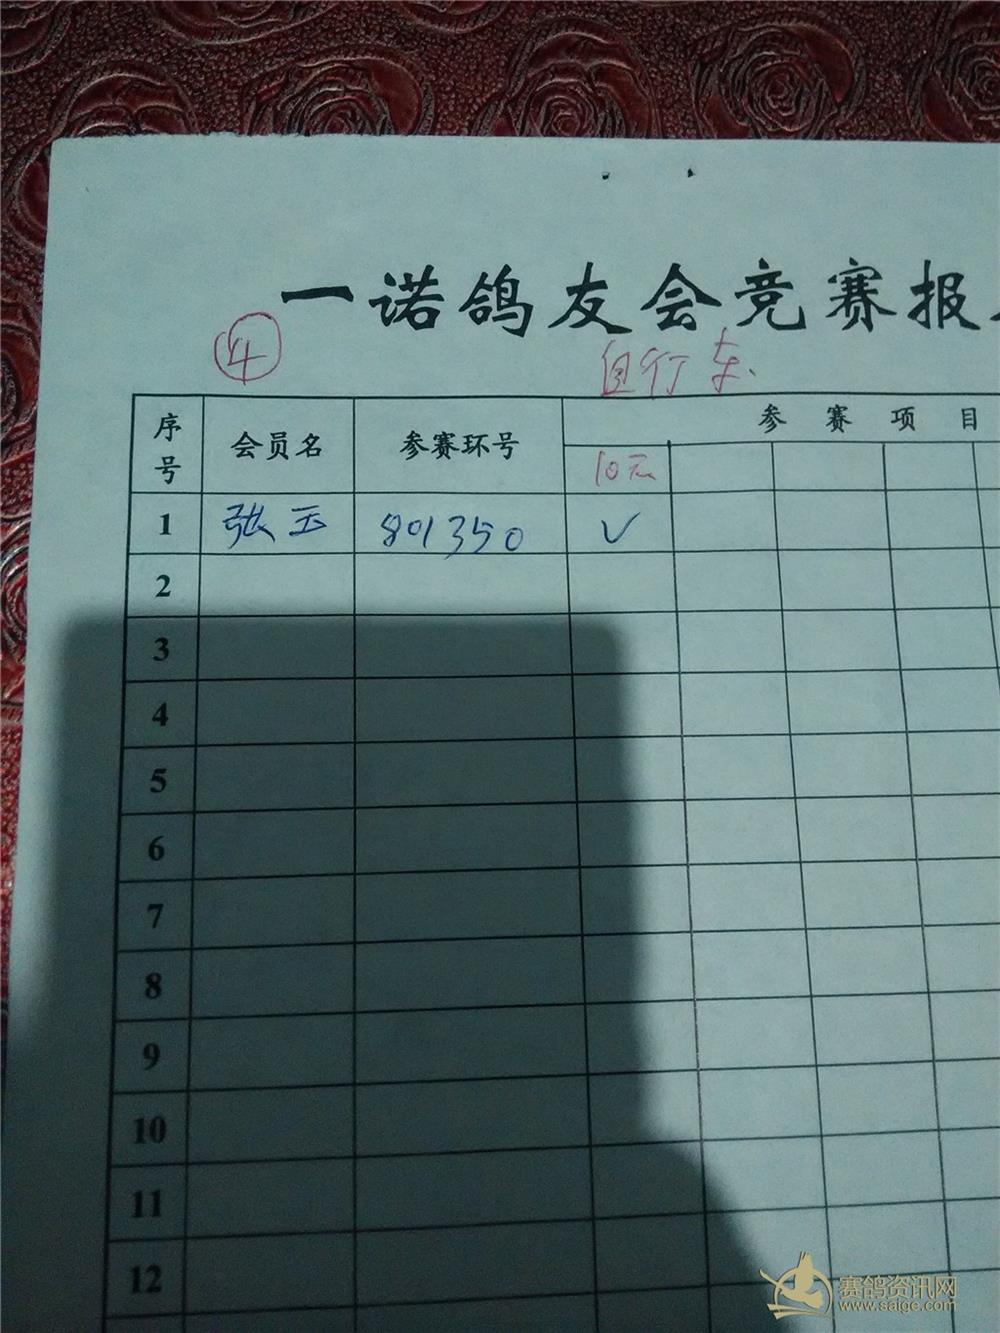 一诺鸽友会竞赛报
④
自行车
序号 会员名 参赛环号 参赛项目
10元
1 张玉 801350 √
2
3
4
5
6
7
8
9
10
11
12
赛鸽资讯网
www.saige.com